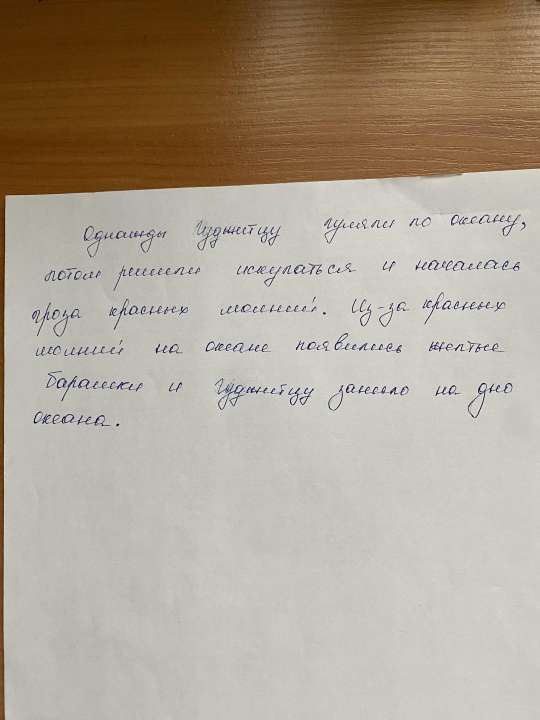 Однажды Гуджитцу гуляли по океану,
потом решили искупаться и началась
гроза красных молний. Из-за красных
молний на океане появились желтые
барашки и Гуджитцу занесло на дно
океана.